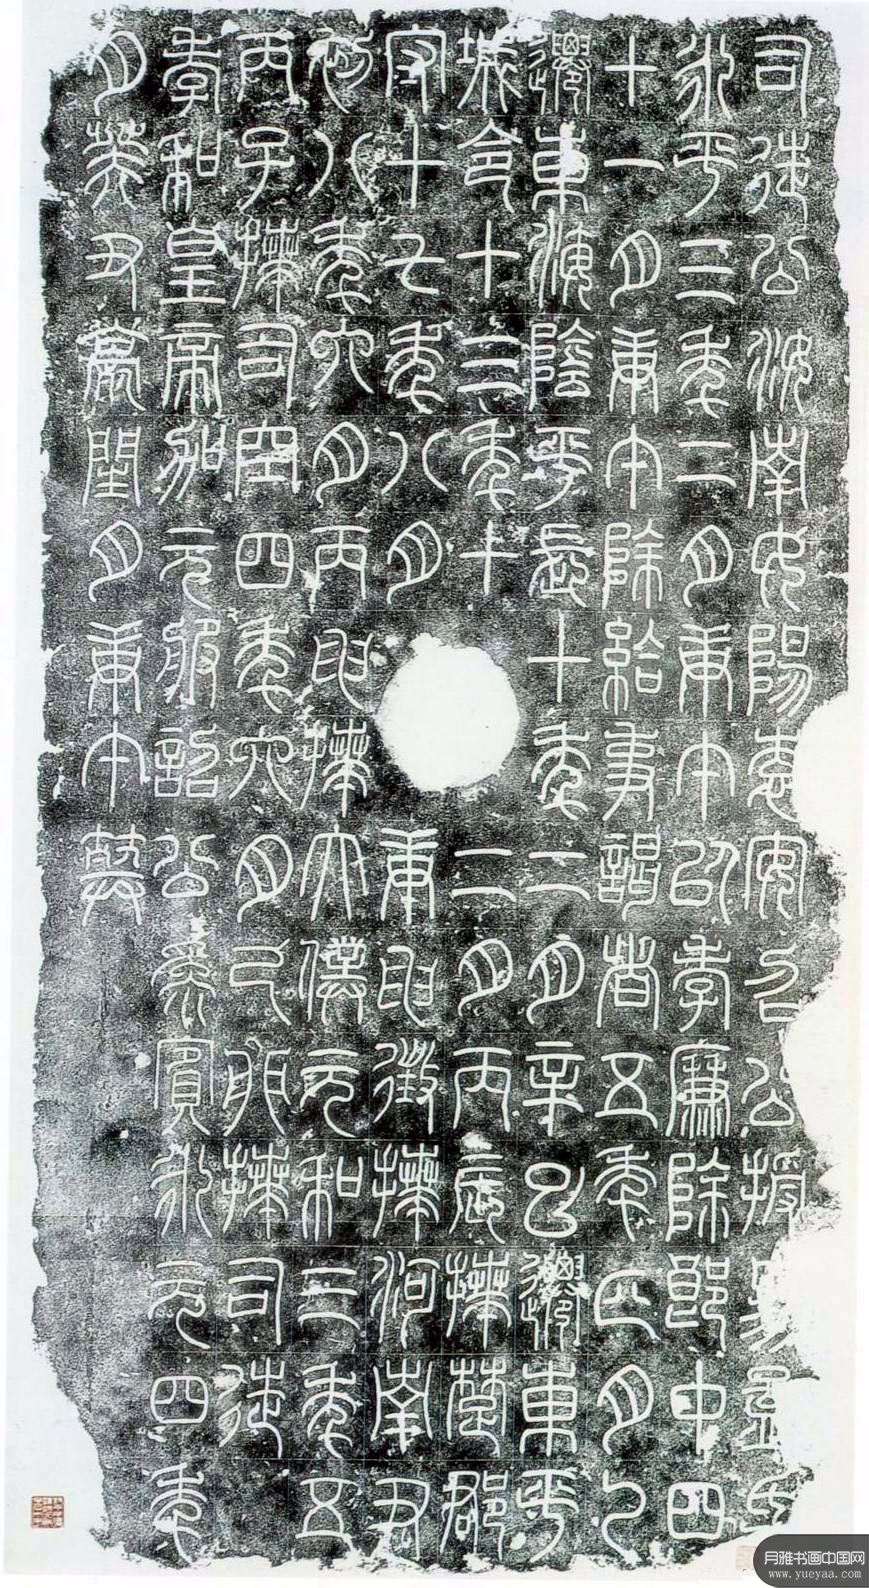 司徒公汝南女陽袁安召公授易孟氏
永平三年二月庚午以孝廉除郎中四
十一月庚午除給事謁者五年正月乙
遷東海陰平長十年二月辛巳遷東平
城令十三年十二月丙辰拜楚郡
守十七年八月庚申徵拜河南尹
初八年六月丙申拜太僕元和三年五
丙子拜司空四年六月己卯拜司徒
孝和皇帝加元服詔公為賓永元四年
月癸丑薨閏月庚午葬
月雅书画中国网
www.yueyaa.com